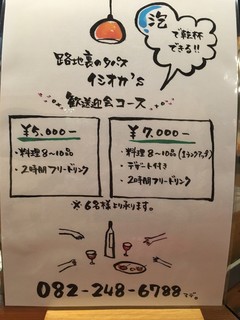 泡
で乾杯
できる!!
路地裏のタパス
イシオカ's
歓送迎会コース
¥5,000−
・料理8〜10品
・2時間フリードリンク
¥7,000−
・料理8〜10品(1ランクアップ)
・デザート付き
・2時間フリードリンク
※6名様より承ります。
082-248-6788まで。